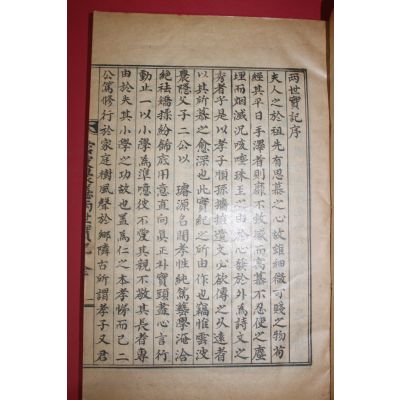 两世實記序
夫人之於祖先有思慕之心故雖細微可賤之物苟
經其平日手澤者則靡不敬感而高慕不忍便之塵
埋而烟滅况咳唾珠玉之由於心發於外爲詩文之
秀者乎是以孝子順孫摭遺文必欲傳之久遠者
以其所慕之愈深也此實紀之所由作也竊惟雲波
農隱父子二公以 璿源名閥孝性純篤藝學淹洽
絶祛矯揉紛餙底用意直向真正朴實頭盡心言行
動止一以小學為準噫彼不愛其親不敬其長者專
由於失其小學之功故也盖為仁之本孝悌而已二
公篤修行於家庭樹風聲於鄉隣古所謂孝子又君
两世實記